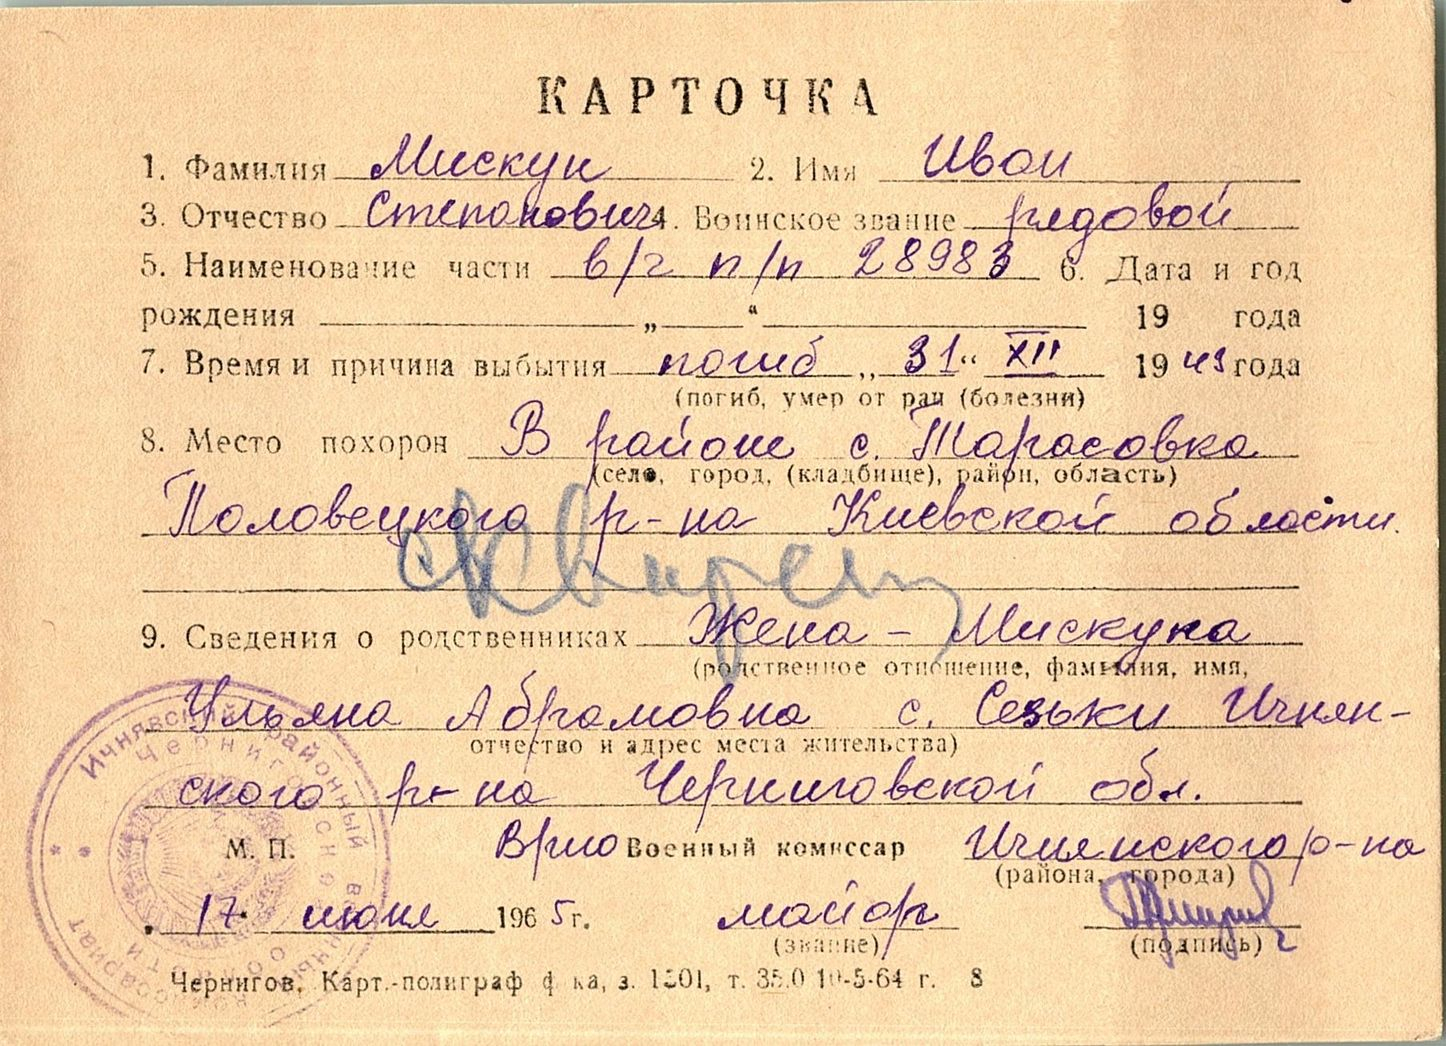 КАРТОЧКА
1. Фамилия Мискун 2. Имя Иван
3. Отчество Степанович 4. Воинское звание рядовой
5. Наименование части в/ч п/п 28983 6. Дата и год
рождения „ “ 19 года
7. Время и причина выбытия погиб „31“ XII 1943 года
(погиб, умер от ран (болезни)
8. Место похорон В районе с. Тарасовка
(село, город, (кладбище), район, область)
Половецкого р-на Киевской области.
9. Сведения о родственниках Жена – Мискуна
(родственное отношение, фамилия, имя,
Ульяна Абрамовна с. Сезьки Ичнян-
отчество и адрес места жительства)
ского р-на Черниговской обл.
М. П. Врио Военный комиссар Ичнянского р-на
(района, города)
17 июня 1965 г. майор
(звание) (подпись)
Чернигов, Карт.-полиграф ф-ка, з. 1301, т. 35.0 10-5-64 г. 8
Ичнявский районный военный комиссариат
Черниговской области